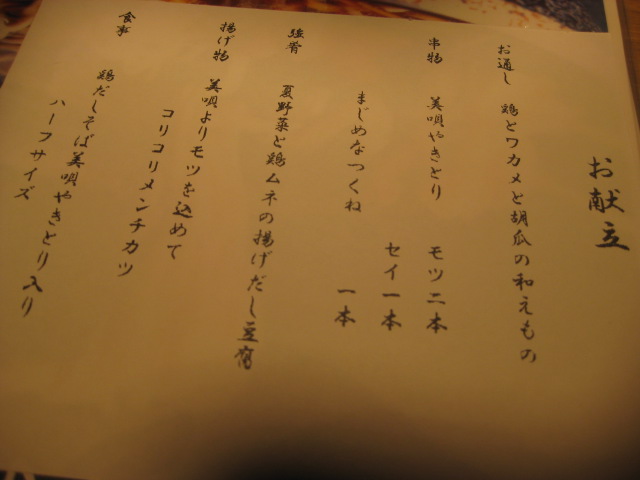 お献立
お通し 鶏とワカメと胡瓜の和えもの
串物 美唄やきとり モツ二本
セイ一本
まじめなつくね 一本
強肴 夏野菜と鶏ムネの揚げだし豆腐
揚げ物 美唄よりモツを込めて
コリコリメンチカツ
食事 鶏だしそば美唄やきとり入り
ハーフサイズ